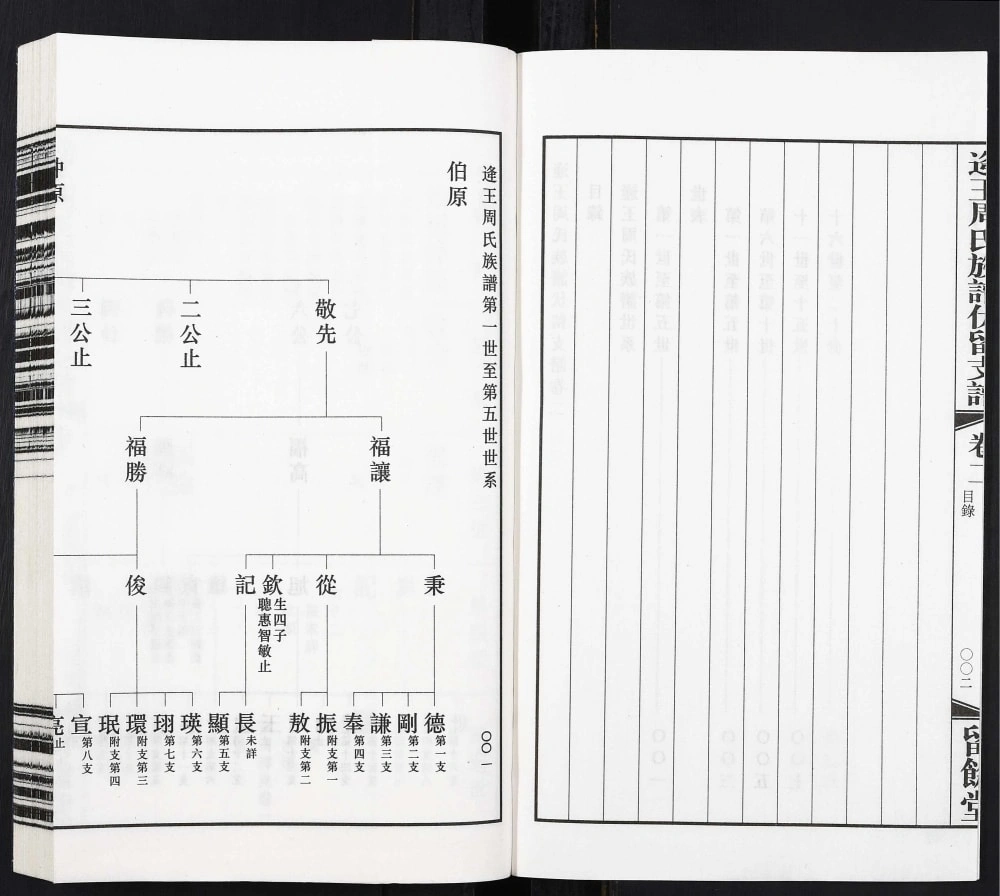 逄王周氏族譜伏留支譜
卷二
目錄
〇〇二
留餘堂
逄王周氏族譜第一世至第五世世系
〇〇一
伯原
敬先
二公止
三公止
福讓
福勝
秉
從
欽 生四子
聰惠智敏止
記
俊
德 第一支
剛 第二支
謙 第三支
奉 第四支
振 附支第一
敖 附支第二
長 未詳
顯 第五支
瑛 第六支
珝 第七支
環 附支第三
珉 附支第四
宣 第八支
亮 止